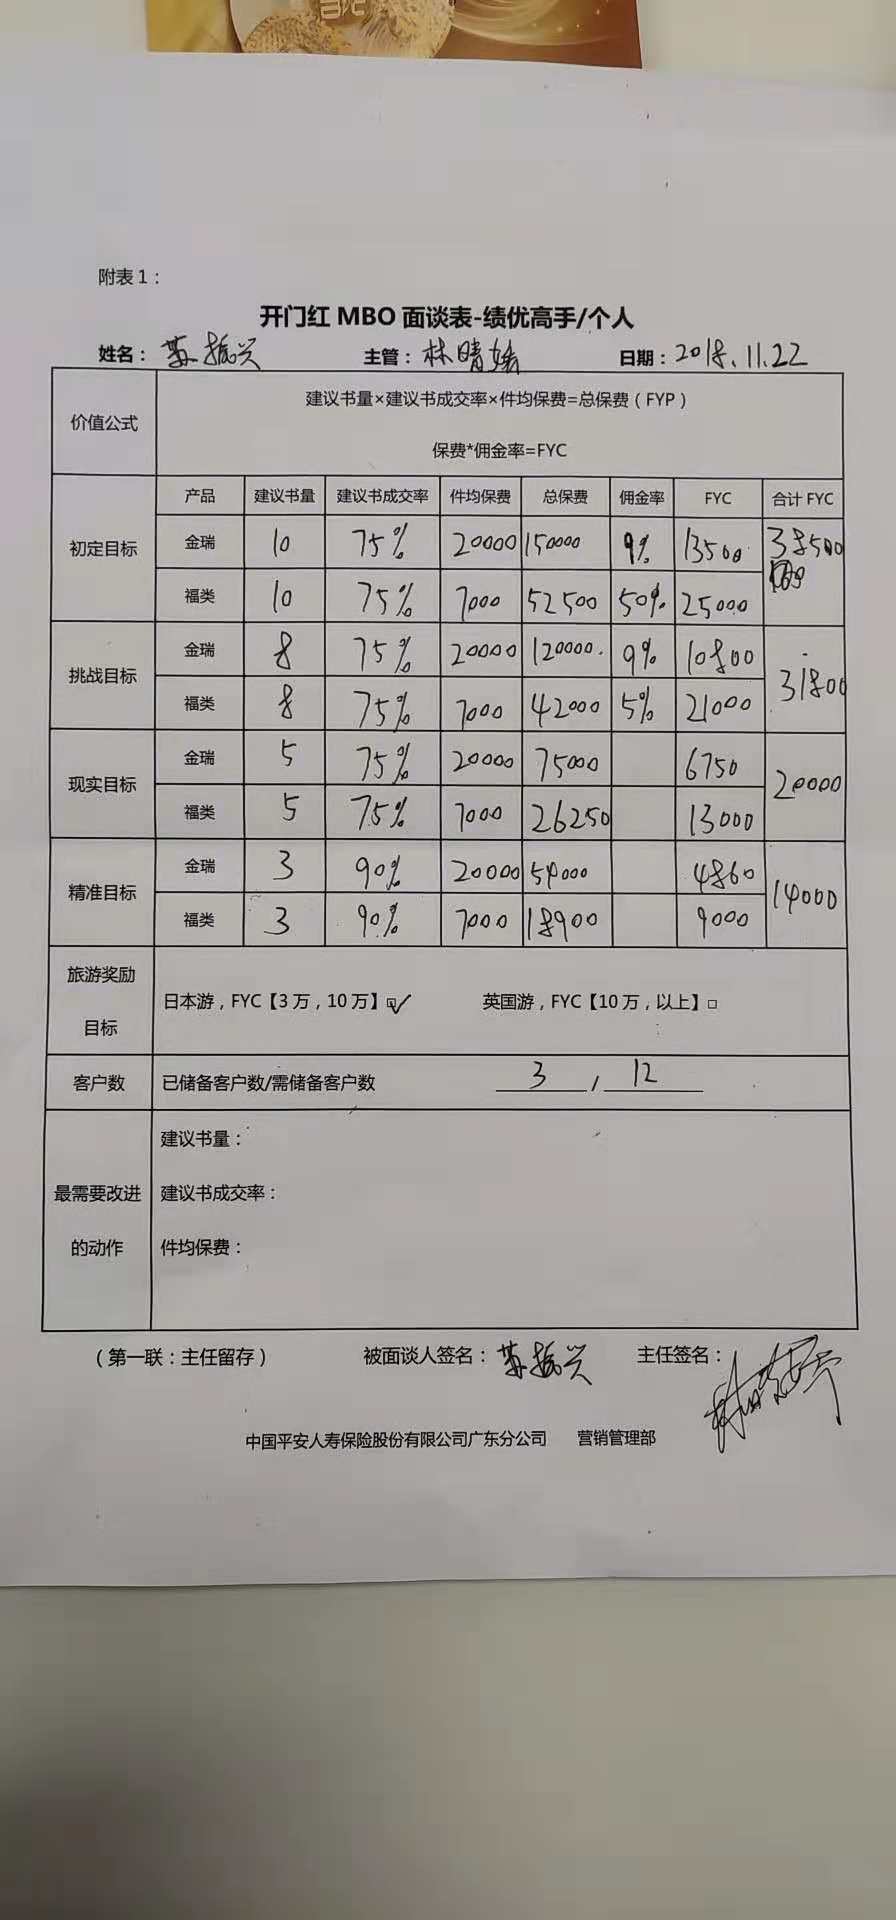 附表1：
开门红 MBO 面谈表-绩优高手/个人
姓名：苏振兴 主管：林晴 日期：2018.11.22
价值公式 建议书量×建议书成交率×件均保费=总保费（FYP）
保费*佣金率=FYC
产品 建议书量 建议书成交率 件均保费 总保费 佣金率 FYC 合计 FYC
初定目标 金瑞 10 75% 20000 150000 9% 13500 38500
福类 10 75% 7000 52500 50% 25000
挑战目标 金瑞 8 75% 20000 120000 9% 10800 31800
福类 8 75% 7000 42000 5% 21000
现实目标 金瑞 5 75% 20000 75000 6750 20000
福类 5 75% 7000 26250 13000
精准目标 金瑞 3 90% 20000 54000 4860 14000
福类 3 90% 7000 18900 9000
旅游奖励目标 日本游，FYC【3万，10万】☑ 英国游，FYC【10万，以上】□
客户数 已储备客户数/需储备客户数 3 / 12
最需要改进的动作 建议书量：
建议书成交率：
件均保费：
（第一联：主任留存） 被面谈人签名：苏振兴 主任签名：
中国平安人寿保险股份有限公司广东分公司 营销管理部